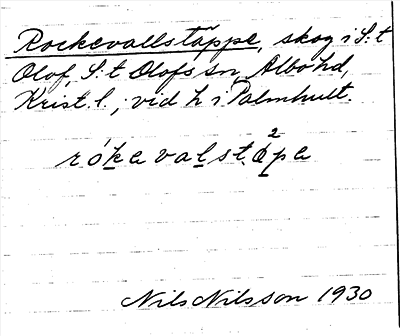 Rockevallstäppe, skog i S:t
Olof, S:t Olofs sn, Albo hd,
Krist. l., vid h i Palmhult.
rókevalstä²pe
Nils Nilsson 1930